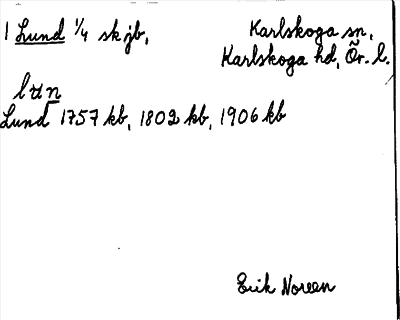 1 Lund 1/4 sk jb,
Karlskoga sn,
Karlskoga hd, Ör. l.
Lund 1757 kb, 1802 kb, 1906 kb
Erik Noreen